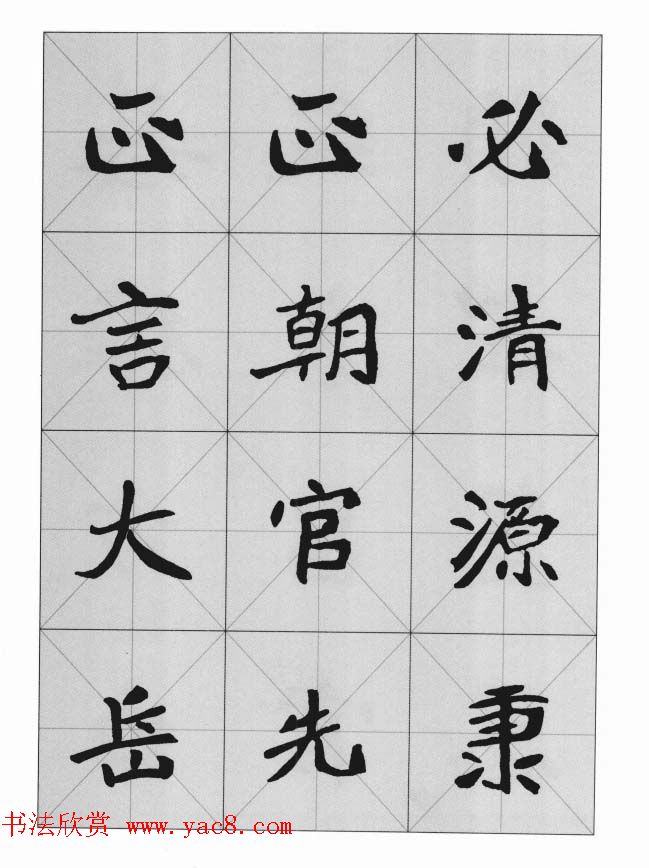 必清源秉
正朝官先
正言大岳
书法欣赏 www.yac8.com